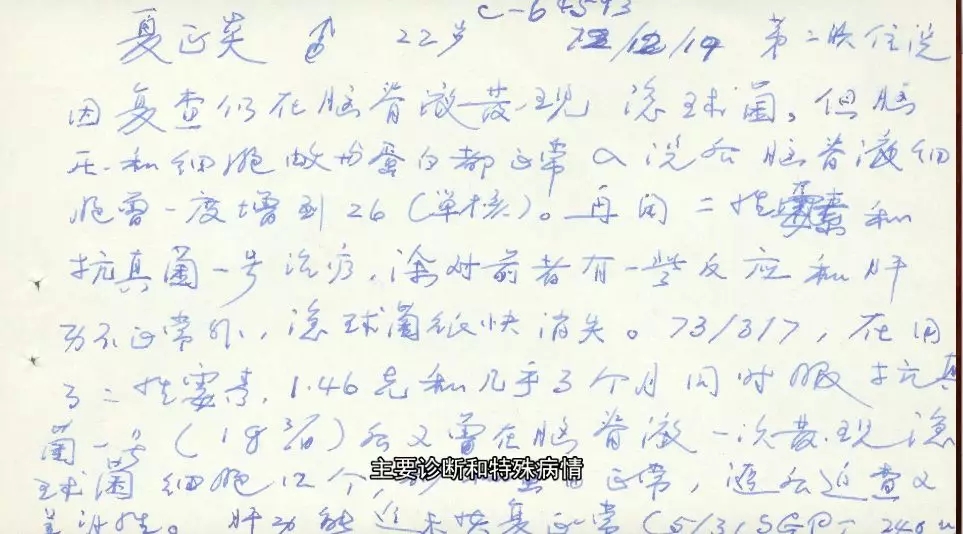 C-64593
夏正炎 ♂ 22岁 72/12/19 第二次住院
因复查仍在脑脊液发现隐球菌。但脑
压和细胞数均蛋白都正常。入院后脑脊液细
胞曾一度增到26(单核)。再用二性霉素和
抗真菌一号治疗,除对前者有一些反应和肝
功不正常外,隐球菌很快消失。73/3/7,在用
了二性霉素1.46克和几乎3个月同时服抗真
菌一号(18 )后又曾在脑脊液一次发现隐
球菌细胞12个, 正常,随后近查又
。肝功能近未恢复正常(5/3/SGPT 240u
主要诊断和特殊病情